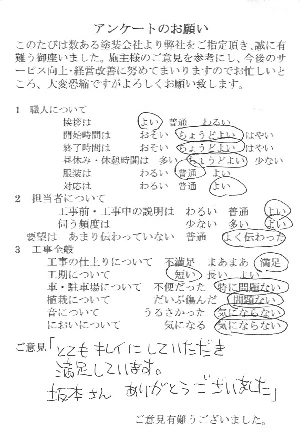 アンケートのお願い
このたびは数ある塗装会社より弊社をご指定頂き、誠に有
難う御座いました。施主様のご意見を参考にし、今後のサ
ービス向上・経営改善に努めてまいりますのでお忙しいと
ころ、大変恐縮ですがよろしくお願い致します。
1 職人について
挨拶は よい 普通 わるい
開始時間は おそい ちょうどよい はやい
終了時間は おそい ちょうどよい はやい
昼休み・休憩時間は 多い ちょうどよい 少ない
服装は わるい 普通 よい
対応は わるい 普通 よい
2 担当者について
工事前・工事中の説明は わるい 普通 よい
伺う頻度は 少ない 多い よい
要望は あまり伝わっていない 普通 よく伝わった
3 工事全般
工事の仕上りについて 不満足 まあまあ 満足
工期について 短い 長い よい
車・駐車場について 不便だった 特に問題ない
植栽について だいぶ傷んだ 問題ない
音について うるさかった 気にならない
においについて 気になる 気にならない
ご意見「とてもキレイにしていただき
満足しています。
坂本さん ありがとうございました」
ご意見有難うございました。